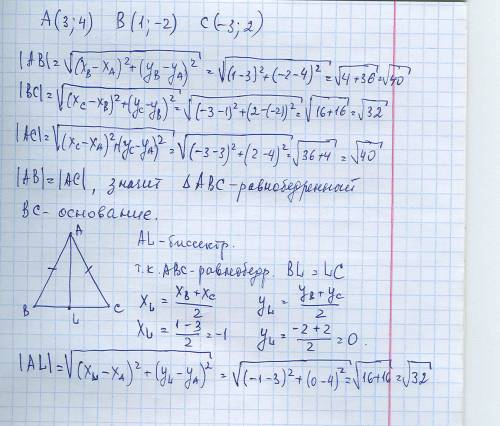 A(3;4) B(1;-2) C(-3;2)
|AB|=√((x_B-x_A)²+(y_B-y_A)²)=√((1-3)²+(-2-4)²)=√(4+36)=√40
|BC|=√((x_C-x_B)²+(y_C-y_B)²)=√((-3-1)²+(2-(-2))²)=√(16+16)=√32
|AC|=√((x_C-x_A)²+(y_C-y_A)²)=√((-3-3)²+(2-4)²)=√(36+4)=√40
|AB|=|AC|, значит ΔABC-равнобедренный
BC-основание.
A
B
C
L
AL-биссектр.
т.к. ABC-равнобедр. BL=LC
x_L=(x_B+x_C)/2 y_L=(y_B+y_C)/2
x_L=(1-3)/2=-1 y_L=(-2+2)/2=0.
|AL|=√((x_L-x_A)²+(y_L-y_A)²)=√((-1-3)²+(0-4)²)=√(16+16)=√32